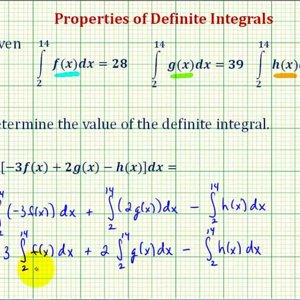 Properties of Definite Integrals
∫₂¹⁴ f(x)dx = 28 ∫₂¹⁴ g(x)dx = 39 ∫₂¹⁴ h(x)
etermine the value of the definite integral.
[−3f(x) + 2g(x) − h(x)]dx =
(-3f(x)) dx + ∫₂¹⁴ (2g(x)) dx − ∫₂¹⁴ h(x) dx
3 ∫₂¹⁴ f(x) dx + 2 ∫₂¹⁴ g(x) dx − ∫₂¹⁴ h(x) dx